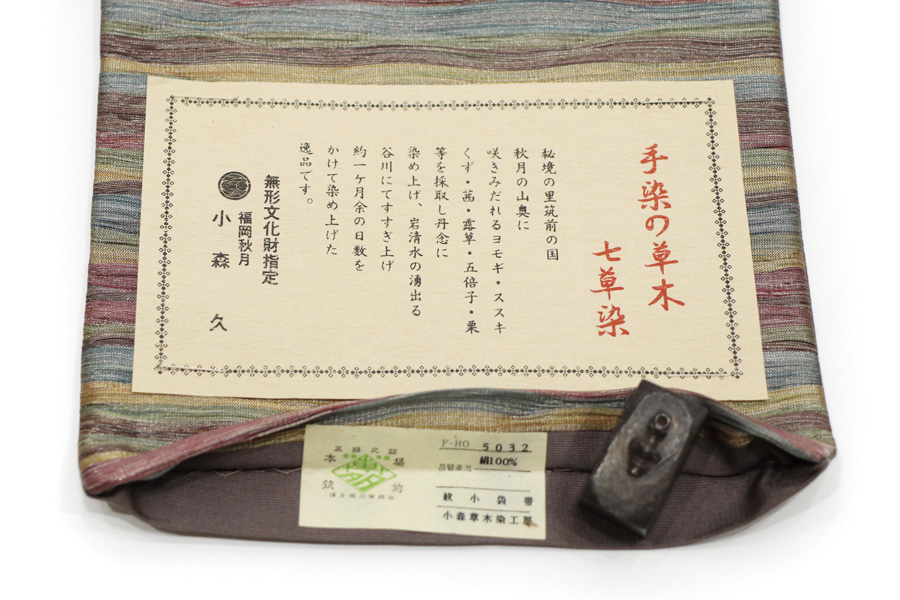 手染の草木
七草染
秘境の里筑前の国
秋月の山奥に
咲きみだれるヨモギ・ススキ
くず・茜・露草・五倍子・栗
等を採取し丹念に
染め上げ、岩清水の湧出る
谷川にてすすぎ上げ
約一ケ月余の日数を
かけて染め上げた
逸品です。
無形文化財指定
福岡秋月
小森 久
本場
筑前
F-HO 5032
絹100%
紋小袋帯
小森草木染工房